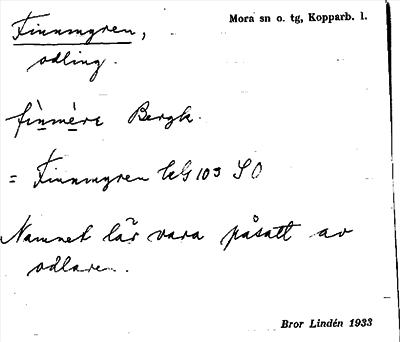 Finnmyren,
Mora sn o. tg, Kopparb. l.
odling.
Bergk.
= Finnmyren 103 SO
Namnet lär vara påsatt av
odlaren.
Bror Lindén 1933